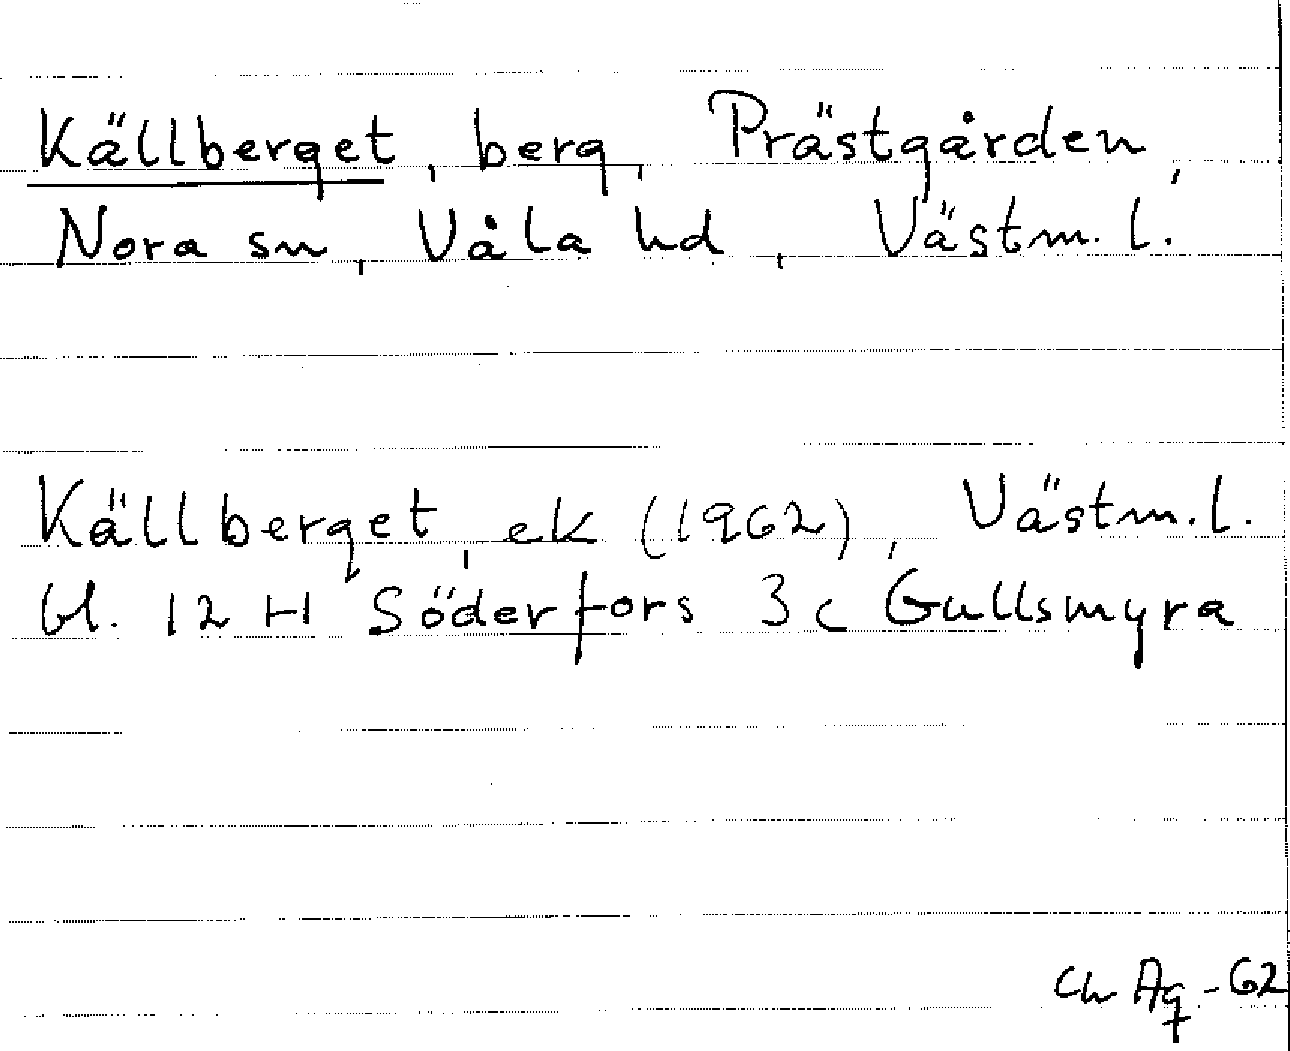 Källberget, berg, Prästgården,
Nora sn, Våla hd, Västm. l.
Källberget, ek (1962), Västm. l.
bl. 12 H Söderfors 3 c Gullsmyra
Ch Ag -62